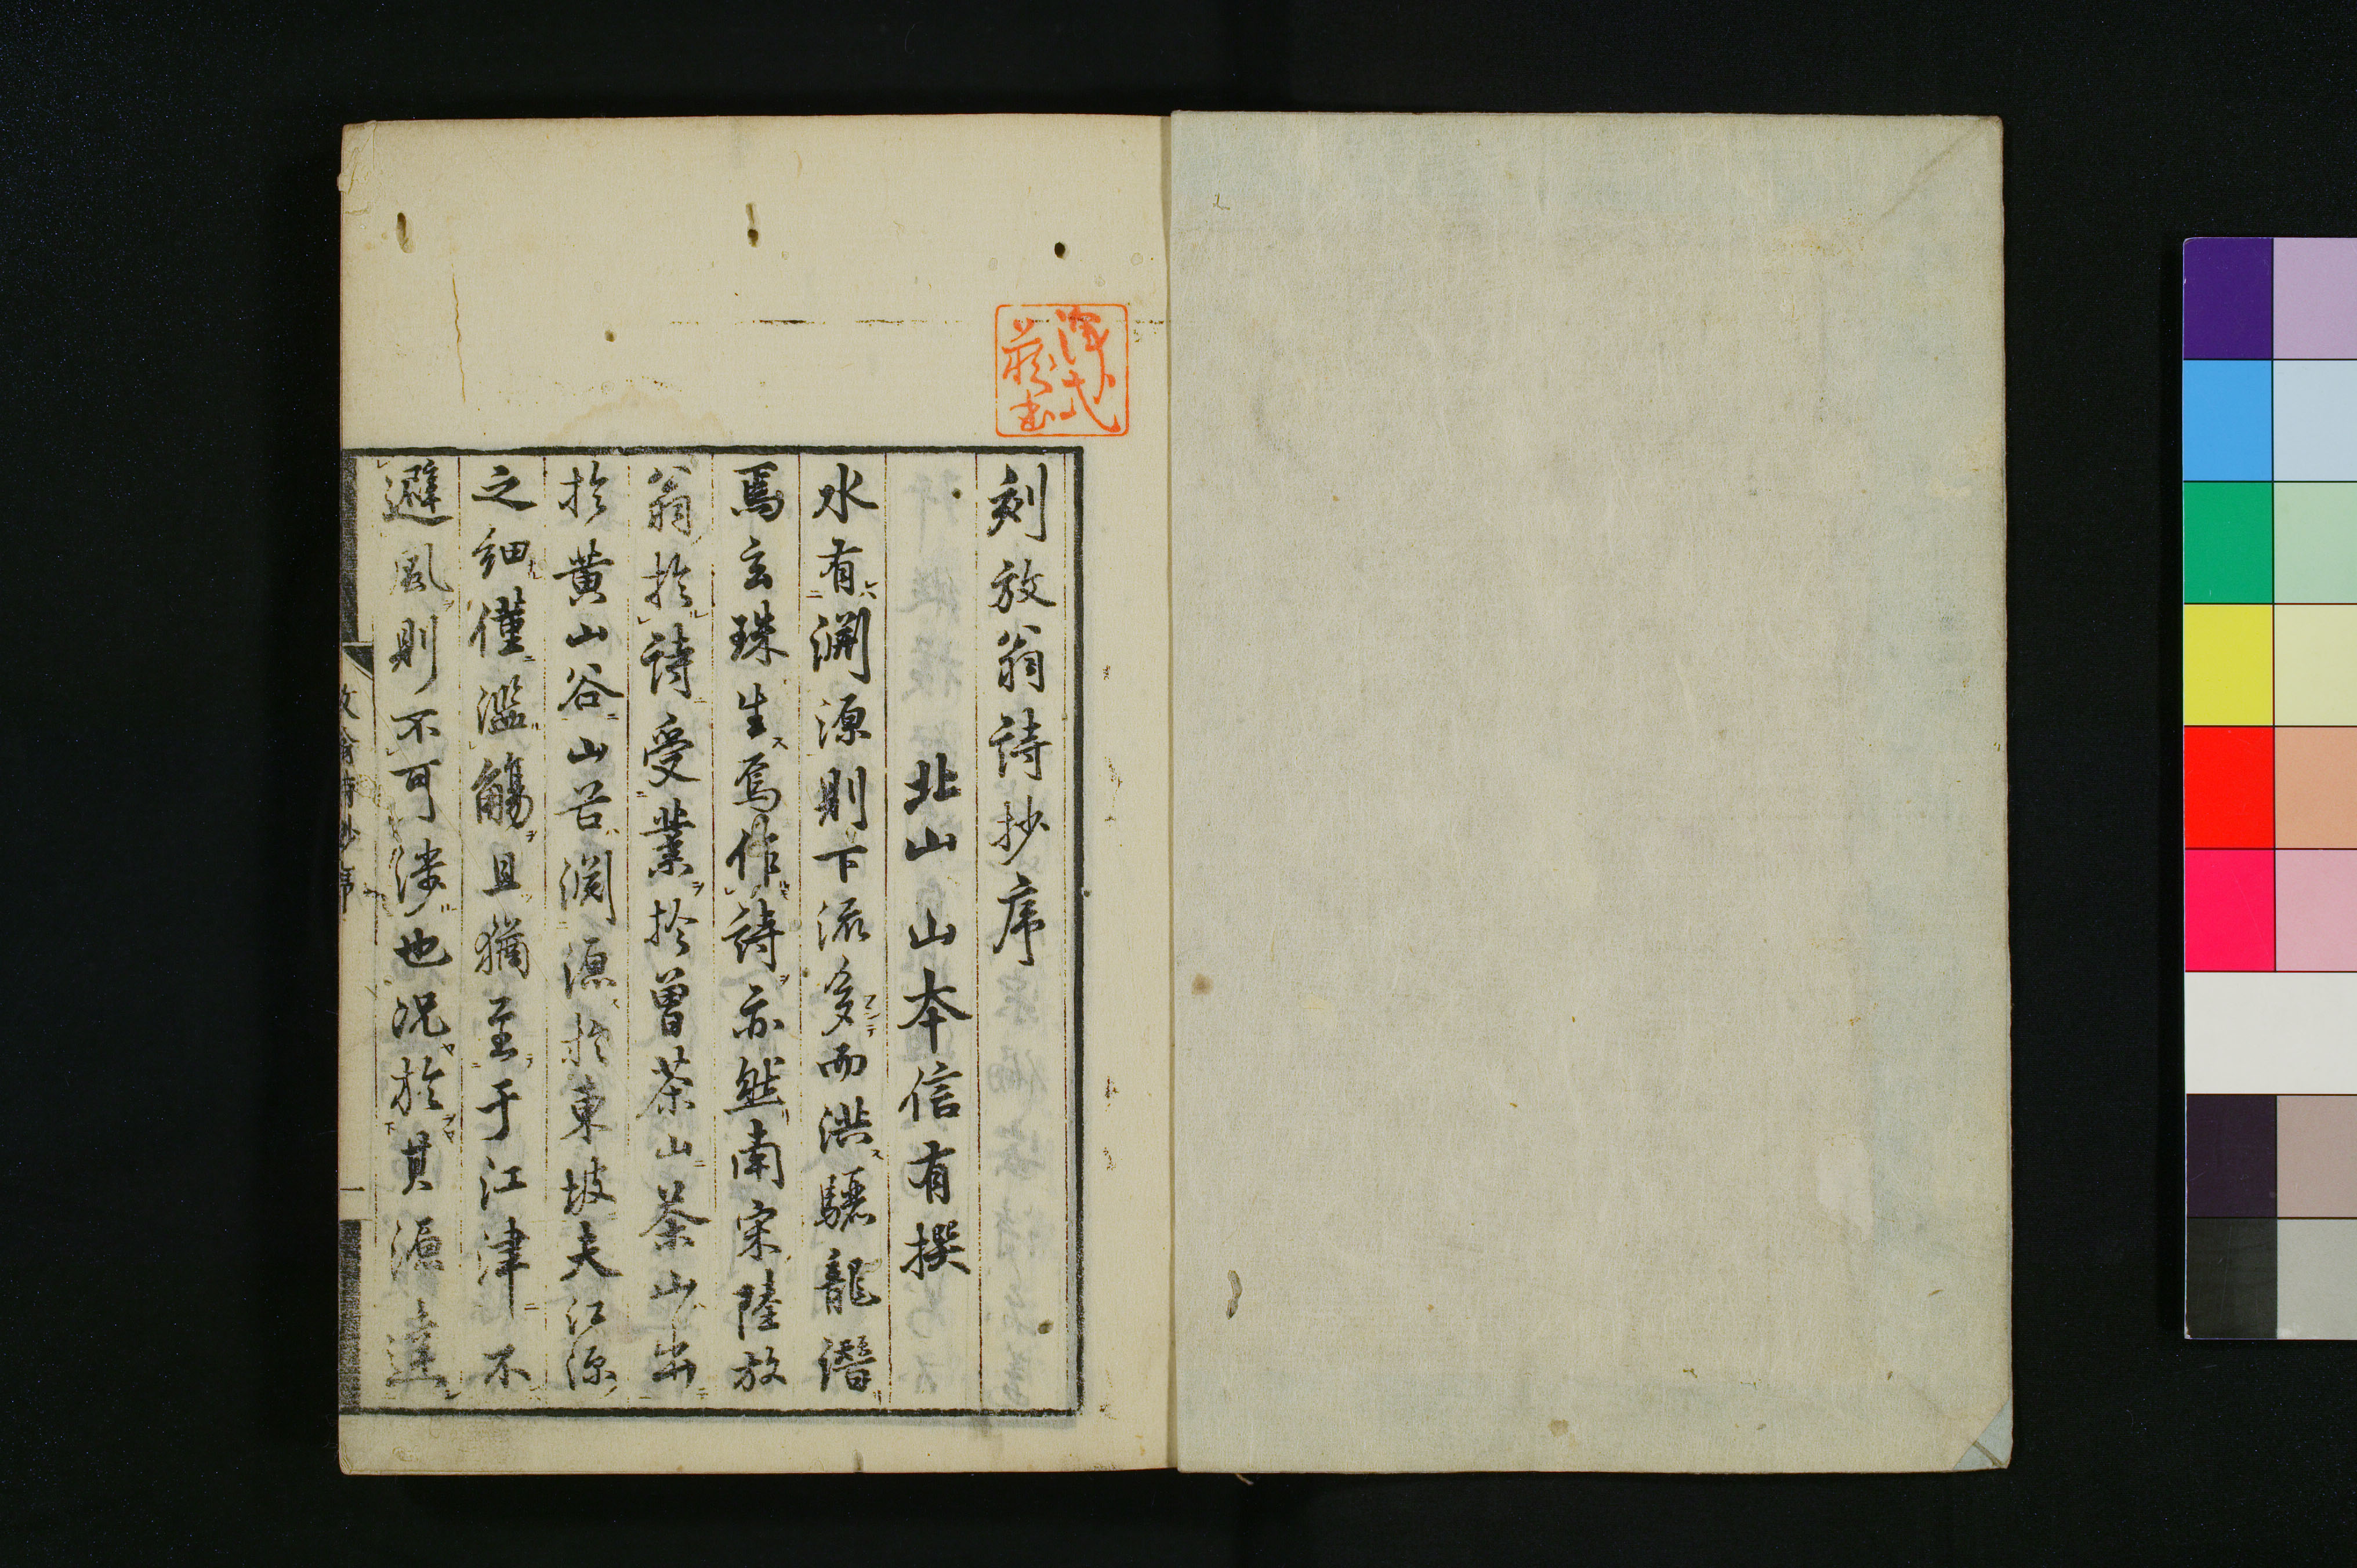 刻放翁詩抄序
北山山本信有撰
水有淵源則下流多而洪驪龍潛
焉玄珠生焉作詩亦然南宋陸放
翁於詩受業於曽茶山茶山出
於黄山谷山谷淵源於東坡夫江源
之細僅濫觴且猶至于江津不
避風則不可渉也况於其源達
放翁詩抄序
一